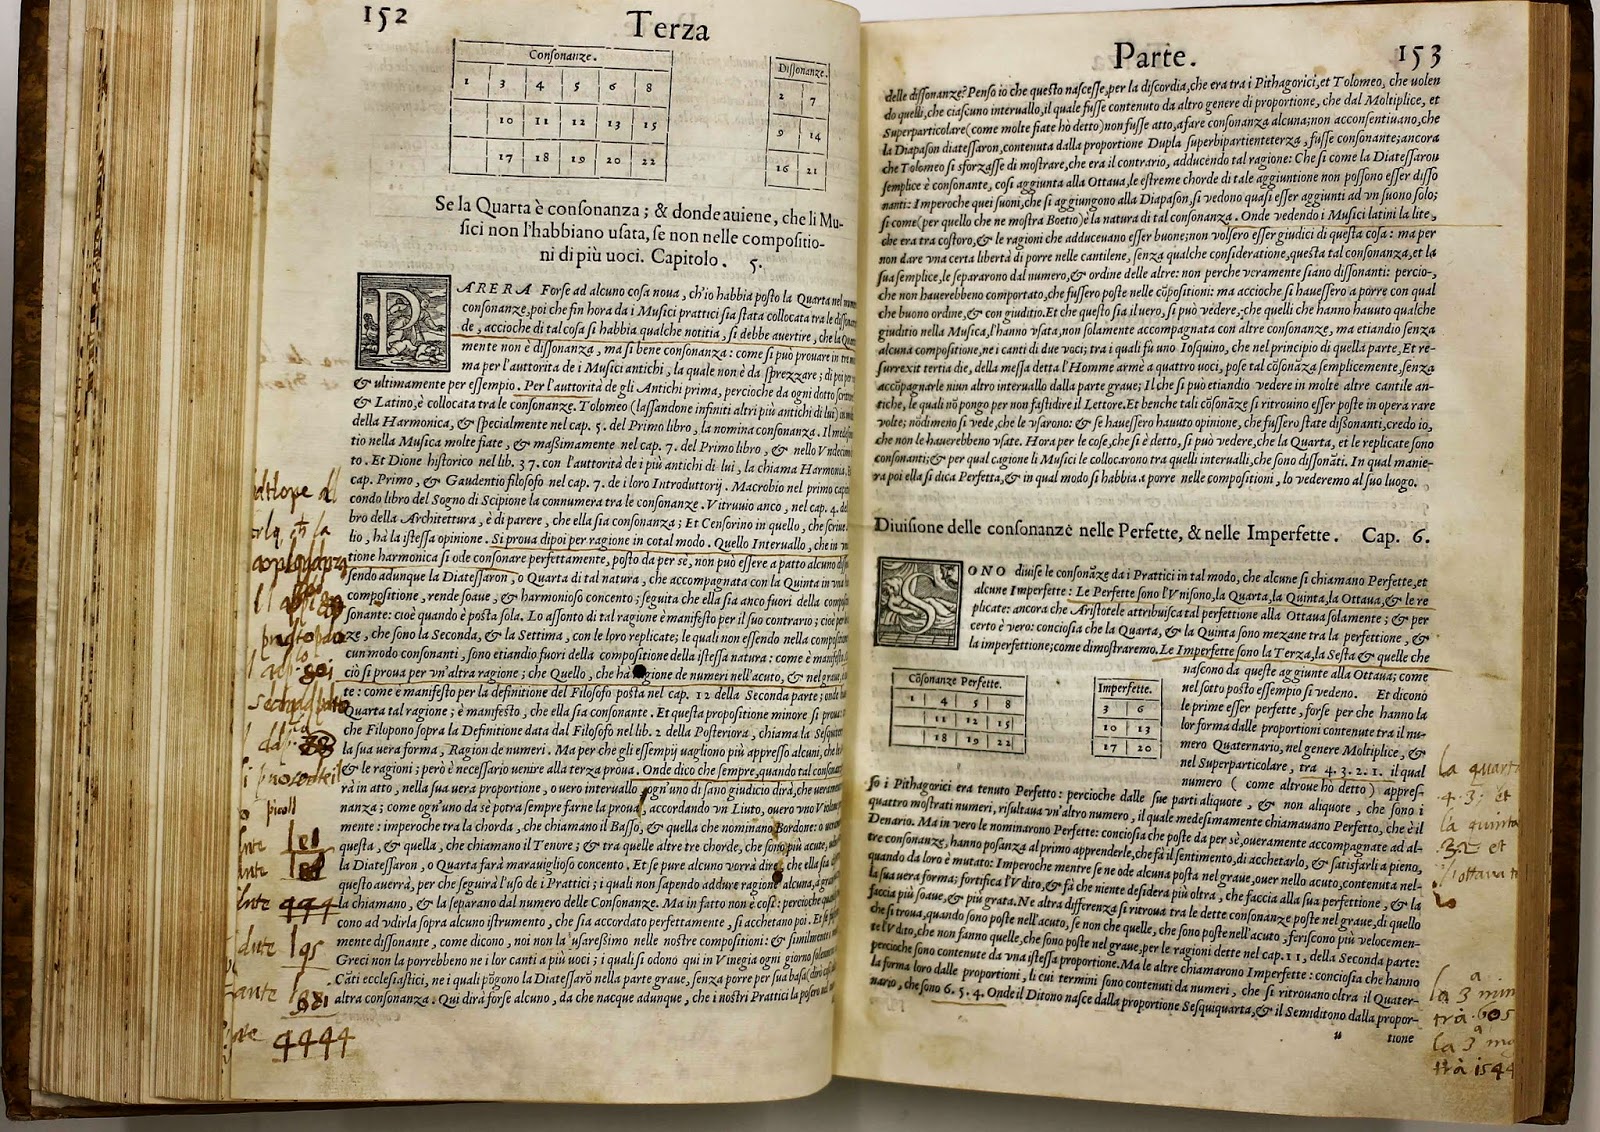 152
Terza
Conſonanze.
1 3 4 5 6 8
10 11 12 13 15
17 18 19 20 22
Diſſonanze.
2 7
9 14
16 21
Se la Quarta è conſonanza; & donde auiene, che li Mu-
ſici non l'habbiano uſata, ſe non nelle compoſitio-
ni di più uoci. Capitolo. 5.
PARERA Forſe ad alcuno coſa noua, ch'io habbia poſto la Quarta nel
conſonanze, poi che fin hora da i Muſici prattici ſia ſtata collocata tra le
de, accioche di tal coſa ſi habbia qualche notitia, ſi debbe auertire, che la
mente non è diſſonanza, ma ſi bene conſonanza: come ſi può prouare in tre
ma per l'auttorità de i Muſici antichi, la quale non è da ſprezzare; di poi per
& ultimamente per eſſempio. Per l'auttorità de gli Antichi prima, percioche da ogni dotto
& Latino, è collocata tra le conſonanze. Tolomeo (laſſandone infiniti altri più antichi di lui)
della Harmonica, & ſpecialmente nel cap. 5. del Primo libro, la nomina conſonanza. Il
tio nella Muſica molte fiate, & maßimamente nel cap. 7. del Primo libro, & nello
to. Et Dione hiſtorico nel lib. 37. con l'auttorità de i più antichi di lui, la chiama Harmonia.
cap. Primo, & Gaudentio filoſofo nel cap. 7. de i loro Introduttorij. Macrobio nel primo
condo libro del Sogno di Scipione la connumera tra le conſonanze. Vitruuio anco, nel cap. 4.
bro della Architettura, è di parere, che ella ſia conſonanza; Et Cenſorino in quello, che
lio, hà la iſteſſa opinione. Si proua dipoi per ragione in cotal modo. Quello Interuallo, che in
tione harmonica ſi ode conſonare perfettamente, poſto da per sè, non può eſſere a patto alcuno
ſendo adunque la Diateſſaron, o Quarta di tal natura, che accompagnata con la Quinta in
compoſitione, rende ſoaue, & harmonioſo concento; ſeguita che ella ſia anco fuori della
ſonante: cioè quando è poſta ſola. Lo aſſonto di tal ragione è manifeſto per il ſuo contrario; cioè
ze, che ſono la Seconda, & la Settima, con le loro replicate; le quali non eſſendo nella
cun modo conſonanti, ſono etiandio fuori della compoſitione della iſteſſa natura: come è
ciò ſi proua per vn'altra ragione; che Quello, che hà ragione de numeri nell'acuto, & nel graue,
te: come è manifeſto per la definitione del Filoſofo poſta nel cap. 12 della Seconda parte;
Quarta tal ragione; è manifeſto, che ella ſia conſonante. Et queſta propoſitione minore ſi
che Filopono ſopra la Definitione data dal Filoſofo nel lib. 2 della Poſteriora, chiama la
la ſua uera forma, Ragion de numeri. Ma per che gli eſſempij uagliono più appreſſo alcuni, che
& le ragioni; però è neceſſario venire alla terza proua. Onde dico che ſempre, quando tal
rà in atto, nella ſua uera proportione, o uero interuallo ogn'uno di ſano giudicio dirà, che
nanza; come ogn'uno da sè potrà ſempre farne la proua, accordando vn Liuto, ouero vno
mente: imperoche tra la chorda, che chiamano il Baſſo, & quella che nominano Bordone:
queſta, & quella, che chiamano il Tenore; & tra quelle altre tre chorde, che ſono più acute,
la Diateſſaron, o Quarta farà marauiglioſo concento. Et ſe pure alcuno vorrà dire, che ella ſia
queſto auerrà, per che ſeguirà l'uſo de i Prattici; i quali non ſapendo addure ragione alcuna,
la chiamano, & la ſeparano dal numero delle Conſonanze. Ma in fatto non è coſi: percioche
cono ad vdirla ſopra alcuno iſtrumento, che ſia accordato perfettamente, ſi acchetano poi. Et
mente diſſonante, come dicono, noi non la uſareſſimo nelle noſtre compoſitioni: & ſimilmente
Greci non la porrebbeno ne i lor canti a più uoci; i quali ſi odono qui in Vinegia ogni giorno
Cāti eccleſiaſtici, ne i quali pōgono la Diateſſarō nella parte graue, ſenza porre per ſua baſa
altra conſonanza: Qui dirà forſe alcuno, da che nacque adunque, che i noſtri Prattici la poſero
lei
195
881
4444
Parte.
153
delle diſſonanze? Penſo io che queſto naſceſſe, per la diſcordia, che era tra i Pithagorici, et Tolomeo, che uolen
do quelli, che ciaſcuno interuallo, il quale fuſſe contenuto da altro genere di proportione, che dal Moltiplice, et
Superparticolare (come molte fiate hò detto) non fuſſe atto, a fare conſonanza alcuna; non acconſentiuano, che
la Diapaſon diateſſaron, contenuta dalla proportione Dupla ſuperbipartienteterza, fuſſe conſonante; ancora
che Tolomeo ſi sforzaſſe di moſtrare, che era il contrario, adducendo tal ragione: Che ſi come la Diateſſaron
ſemplice è conſonante, coſi aggiunta alla Ottaua, le eſtreme chorde di tale aggiuntione non poſſono eſſer diſſo
nanti: Imperoche quei ſuoni, che ſi aggiungono alla Diapaſon, ſi vedono quaſi eſſer aggiunti ad vn ſuono ſolo;
ſi come (per quello che ne moſtra Boetio) è la natura di tal conſonanza. Onde vedendo i Muſici latini la lite,
che era tra coſtoro, & le ragioni che adduceuano eſſer buone; non volſero eſſer giudici di queſta coſa: ma per
non dare vna certa libertà di porre nelle cantilene, ſenza qualche conſideratione, queſta tal conſonanza, et la
ſua ſemplice, le ſepararono dal numero, & ordine delle altre: non perche veramente ſiano diſſonanti: percio-
che non hauerebbeno comportato, che fuſſero poſte nelle cōpoſitioni: ma accioche ſi haueſſero a porre con qual
che buono ordine, & con giuditio. Et che queſto ſia il uero, ſi può vedere; che quelli che hanno hauuto qualche
giuditio nella Muſica, l'hanno vſata, non ſolamente accompagnata con altre conſonanze, ma etiandio ſenza
alcuna compoſitione, ne i canti di due voci; tra i quali fù uno Ioſquino, che nel principio di quella parte, Et re-
ſurrexit tertia die, della meſſa detta l'Homme armè a quattro uoci, poſe tal cōſonāza ſemplicemente, ſenza
accōpagnarle niun altro interuallo dalla parte graue; Il che ſi può etiandio vedere in molte altre cantile an-
tiche, le quali nō pongo per non faſtidire il Lettore. Et benche tali cōſonāze ſi ritrouino eſſer poſte in opera rare
volte; nōdimeno ſi vede, che le vſarono: & ſe haueſſero hauuto opinione, che fuſſero ſtate diſſonanti, credo io,
che non le hauerebbeno vſate. Hora per le coſe, che ſi è detto, ſi può vedere, che la Quarta, et le replicate ſono
conſonanti; & per qual cagione li Muſici le collocarono tra quelli interualli, che ſono diſſonāti. In qual manie-
ra poi ella ſi dica Perfetta, & in qual modo ſi habbia a porre nelle compoſitioni, lo vederemo al ſuo luogo.
Diuiſione delle conſonanze nelle Perfette, & nelle Imperfette. Cap. 6.
SONO diuiſe le conſonāze da i Prattici in tal modo, che alcune ſi chiamano Perfette, et
alcune Imperfette: Le Perfette ſono l'Vniſono, la Quarta, la Quinta, la Ottaua, & le re
plicate: ancora che Ariſtotele attribuiſca tal perfettione alla Ottaua ſolamente; & per
certo è vero: concioſia che la Quarta, & la Quinta ſono mezane tra la perfettione, &
la imperfettione; come dimoſtraremo. Le Imperfette ſono la Terza, la Seſta & quelle che
Cōſonanze Perfette.
1 4 5 8
11 12 15
18 19 22
Imperfette.
3 6
10 13
17 20
naſcono da queſte aggiunte alla Ottaua; come
nel ſotto poſto eſſempio ſi vedeno. Et dicono
le prime eſſer perfette, forſe per che hanno la
lor forma dalle proportioni contenute tra il nu-
mero Quaternario, nel genere Moltiplice, &
nel Superparticolare, tra 4. 3. 2. 1. il qual
numero ( come altroue ho detto ) appreſ-
ſo i Pithagorici era tenuto Perfetto: percioche dalle ſue parti aliquote, & non aliquote, che ſono i
quattro moſtrati numeri, riſultaua vn'altro numero, il quale medeſimamente chiamauano Perfetto, che è il
Denario. Ma in vero le nominarono Perfette: concioſia che poſte da per sè, oueramente accompagnate ad al-
tre conſonanze, hanno poſanza al primo apprenderle, che fà il ſentimento, di acchetarlo, & ſatiſfarli a pieno,
quando da loro è mutato: Imperoche mentre ſe ne ode alcuna poſta nel graue, ouer nello acuto, contenuta nel-
la ſua uera forma; fortifica l'Vdito, & fà che niente deſidera più oltra, che faccia alla ſua perfettione, & la
faccia più ſoaue, & più grata. Ne altra differenza ſi ritroua tra le dette conſonanze poſte nel graue, di quello
che ſi troua, quando ſono poſte nell'acuto, ſe non che quelle, che ſono poſte nell'acuto, feriſcono più velocemen-
te l'Vdito, che non fanno quelle, che ſono poſte nel graue, per le ragioni dette nel cap. 11, della Seconda parte:
percioche ſono contenute da vna iſteſſa proportione. Ma le altre chiamarono Imperfette: concioſia che hanno
la forma loro dalle proportioni, li cui termini ſono contenuti da numeri, che ſi ritrouano oltra il Quater-
nario, che ſono 6. 5. 4. Onde il Ditono naſce dalla proportione Seſquiquarta, & il Semiditono dalla propor-
u
tione
la quarta
4. 3; et
la quinta
3 2 et
l'ottaua
la 3 min
trà 6 o 5
la 3
trà 5 4